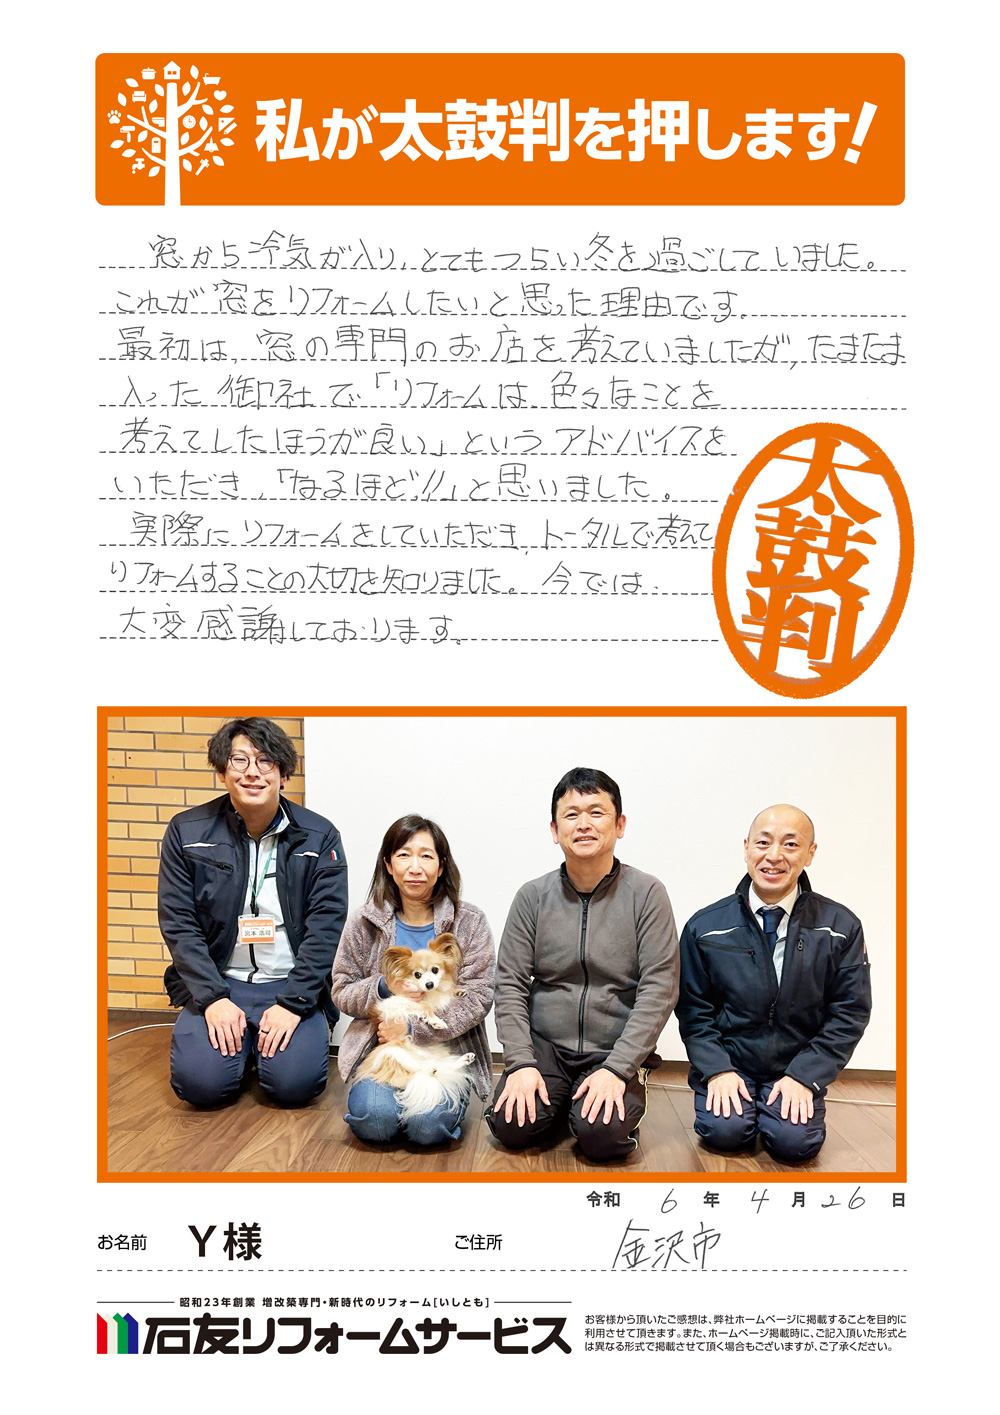 私が太鼓判を押します!
窓から冷気が入り、とてもつらい冬を過ごしていました。
これが窓をリフォームしたいと思った理由です。
最初は、窓の専門のお店を考えていましたが、たまたま
入った御社で「リフォームは色々なことを
考えてしたほうが良い」というアドバイスを
いただき、「なるほど!!」と思いました。
実際にリフォームをしていただき、トータルで考えて
リフォームすることの大切を知りました。今では、
大変感謝しております。
太鼓判
宮本 浩司
令和 6 年 4 月 26 日
お名前 Y様 ご住所 金沢市
昭和23年創業 増改築専門・新時代のリフォーム[いしとも]
石友リフォームサービス
お客様から頂いたご感想は、弊社ホームページに掲載することを目的に
利用させて頂きます。また、ホームページ掲載時に、ご記入頂いた形式と
は異なる形式で掲載させて頂く場合もございますが、ご了承ください。